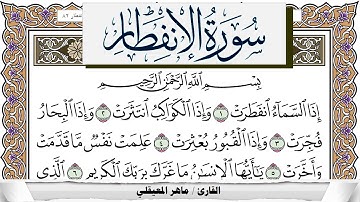 سُورَةُ الِانْفِطَارِ
بِسْمِ اللَّهِ الرَّحْمَٰنِ الرَّحِيمِ
إِذَا السَّمَاءُ انفَطَرَتْ ١ وَإِذَا الْكَوَاكِبُ انتَثَرَتْ ٢ وَإِذَا الْبِحَارُ
فُجِّرَتْ ٣ وَإِذَا الْقُبُورُ بُعْثِرَتْ ٤ عَلِمَتْ نَفْسٌ مَّا قَدَّمَتْ
وَأَخَّرَتْ ٥ يَا أَيُّهَا الْإِنسَانُ مَا غَرَّكَ بِرَبِّكَ الْكَرِيمِ ٦ الَّذِي
القارئ / ماهر المعيقلي